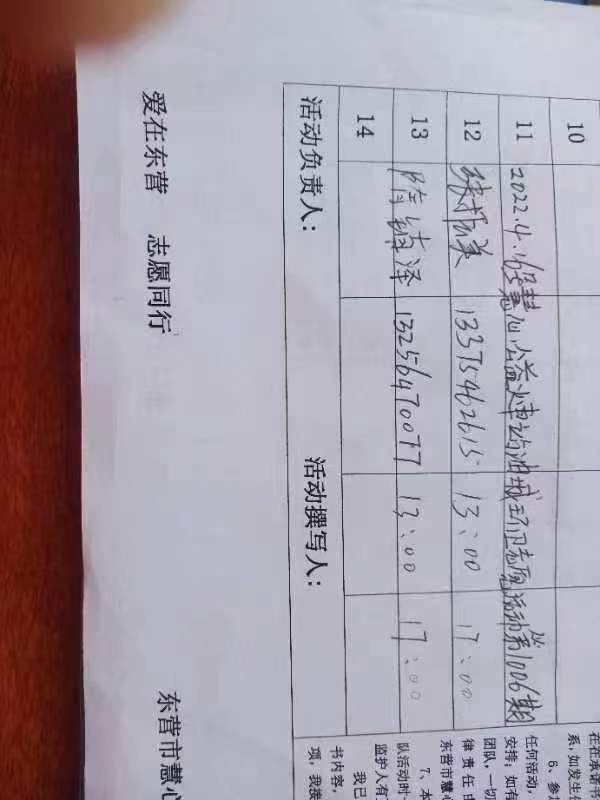 10
11 2022.4.16日慧心公益火车站油城环卫志愿总站活动第1006期
12 13375462615 13:00 17:00
13 隋镇泽 13256470077 13:00 17:00
14
活动负责人： 活动撰写人：
爱在东营 志愿同行
东营市慧心
在在承诺书
系，如发生
6、参
任何活动，
安排；如有
团队，一切
律责任由
东营市慧
7、本
队活动时
监护人有
我已
书内容，
项，我接